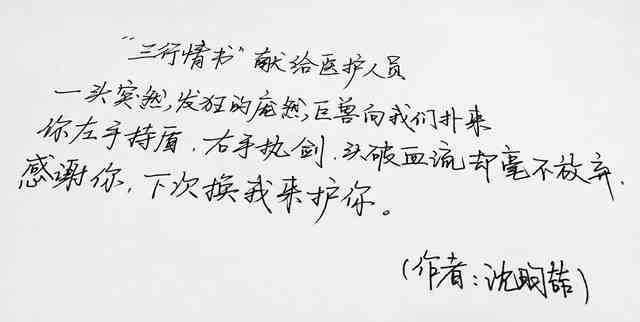 “三行情书”献给医护人员
一头突然,发狂的庞然,巨兽向我们扑来
你左手持盾,右手执剑,头破血流却毫不放弃,
感谢你,下次换我来护你。
(作者:沈昫喆)